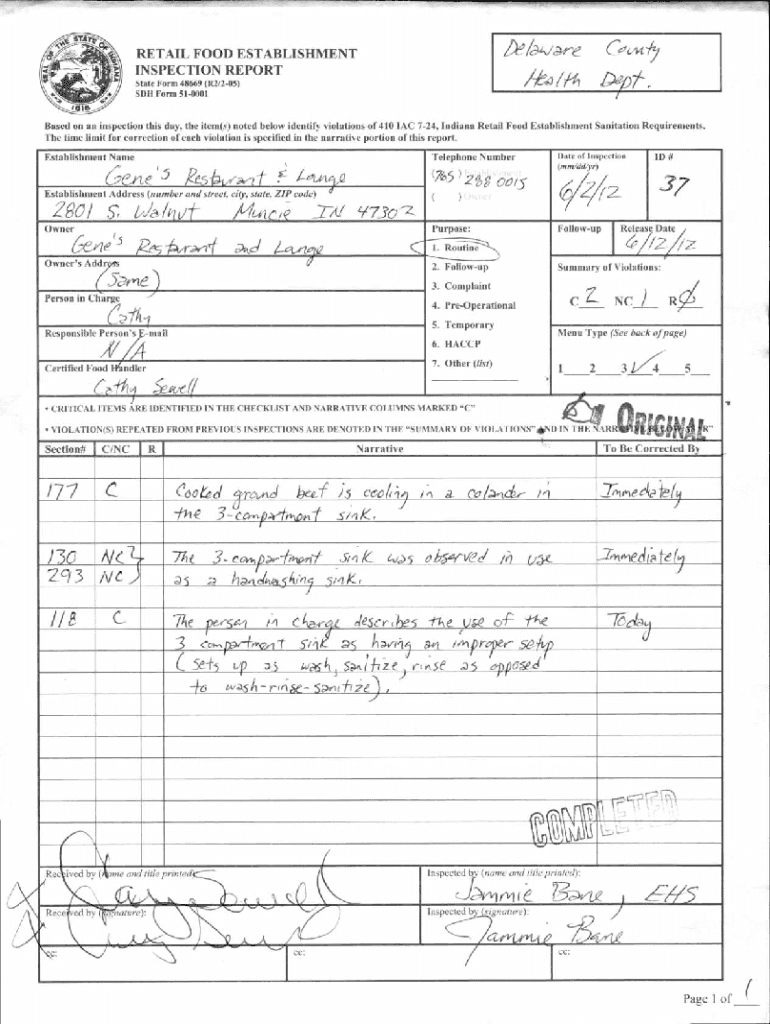 SEAL OF THE STATE OF INDIANA
1816
RETAIL FOOD ESTABLISHMENT
INSPECTION REPORT
State Form 48669 (R2/2-05)
SDH Form 51-0001
Delaware County
Health Dept.
Based on an inspection this day, the item(s) noted below identify violations of 410 IAC 7-24, Indiana Retail Food Establishment Sanitation Requirements.
The time limit for correction of each violation is specified in the narrative portion of this report.
Establishment Name
Gene's Restaurant & Lounge
Telephone Number
(765) 288 0015
( ) Owner
Date of Inspection
(mm/dd/yr)
6/2/12
ID #
37
Establishment Address (number and street, city, state, ZIP code)
2801 S. Walnut Muncie IN 47302
Owner
Gene's Restaurant and Lounge
Owner's Address
(Same)
Person in Charge
Cathy
Responsible Person's E-mail
N/A
Certified Food Handler
Cathy Sewell
Purpose:
1. Routine
2. Follow-up
3. Complaint
4. Pre-Operational
5. Temporary
6. HACCP
7. Other (list)
Follow-up
Release Date
6/12/12
Summary of Violations:
C 2 NC 1 R 0
Menu Type (See back of page)
1 2 3 ✓ 4 5
• CRITICAL ITEMS ARE IDENTIFIED IN THE CHECKLIST AND NARRATIVE COLUMNS MARKED "C"
ORIGINAL
• VIOLATION(S) REPEATED FROM PREVIOUS INSPECTIONS ARE DENOTED IN THE "SUMMARY OF VIOLATIONS" AND IN THE NARRATIVE BELOW AS "R"
Section# C/NC R Narrative To Be Corrected By
177 C Cooked ground beef is cooling in a colander in Immediately
the 3-compartment sink.
130 NC The 3-compartment sink was observed in use Immediately
293 NC as a handwashing sink.
118 C The person in charge describes the use of the Today
3 compartment sink as having an improper setup
(sets up as wash, sanitize, rinse as opposed
to wash-rinse-sanitize).
COMPLETED
Received by (name and title printed):
Inspected by (name and title printed):
Tammie Bane, EHS
Received by (signature):
Inspected by (signature):
Tammie Bane
cc:
cc:
cc:
Page 1 of 1